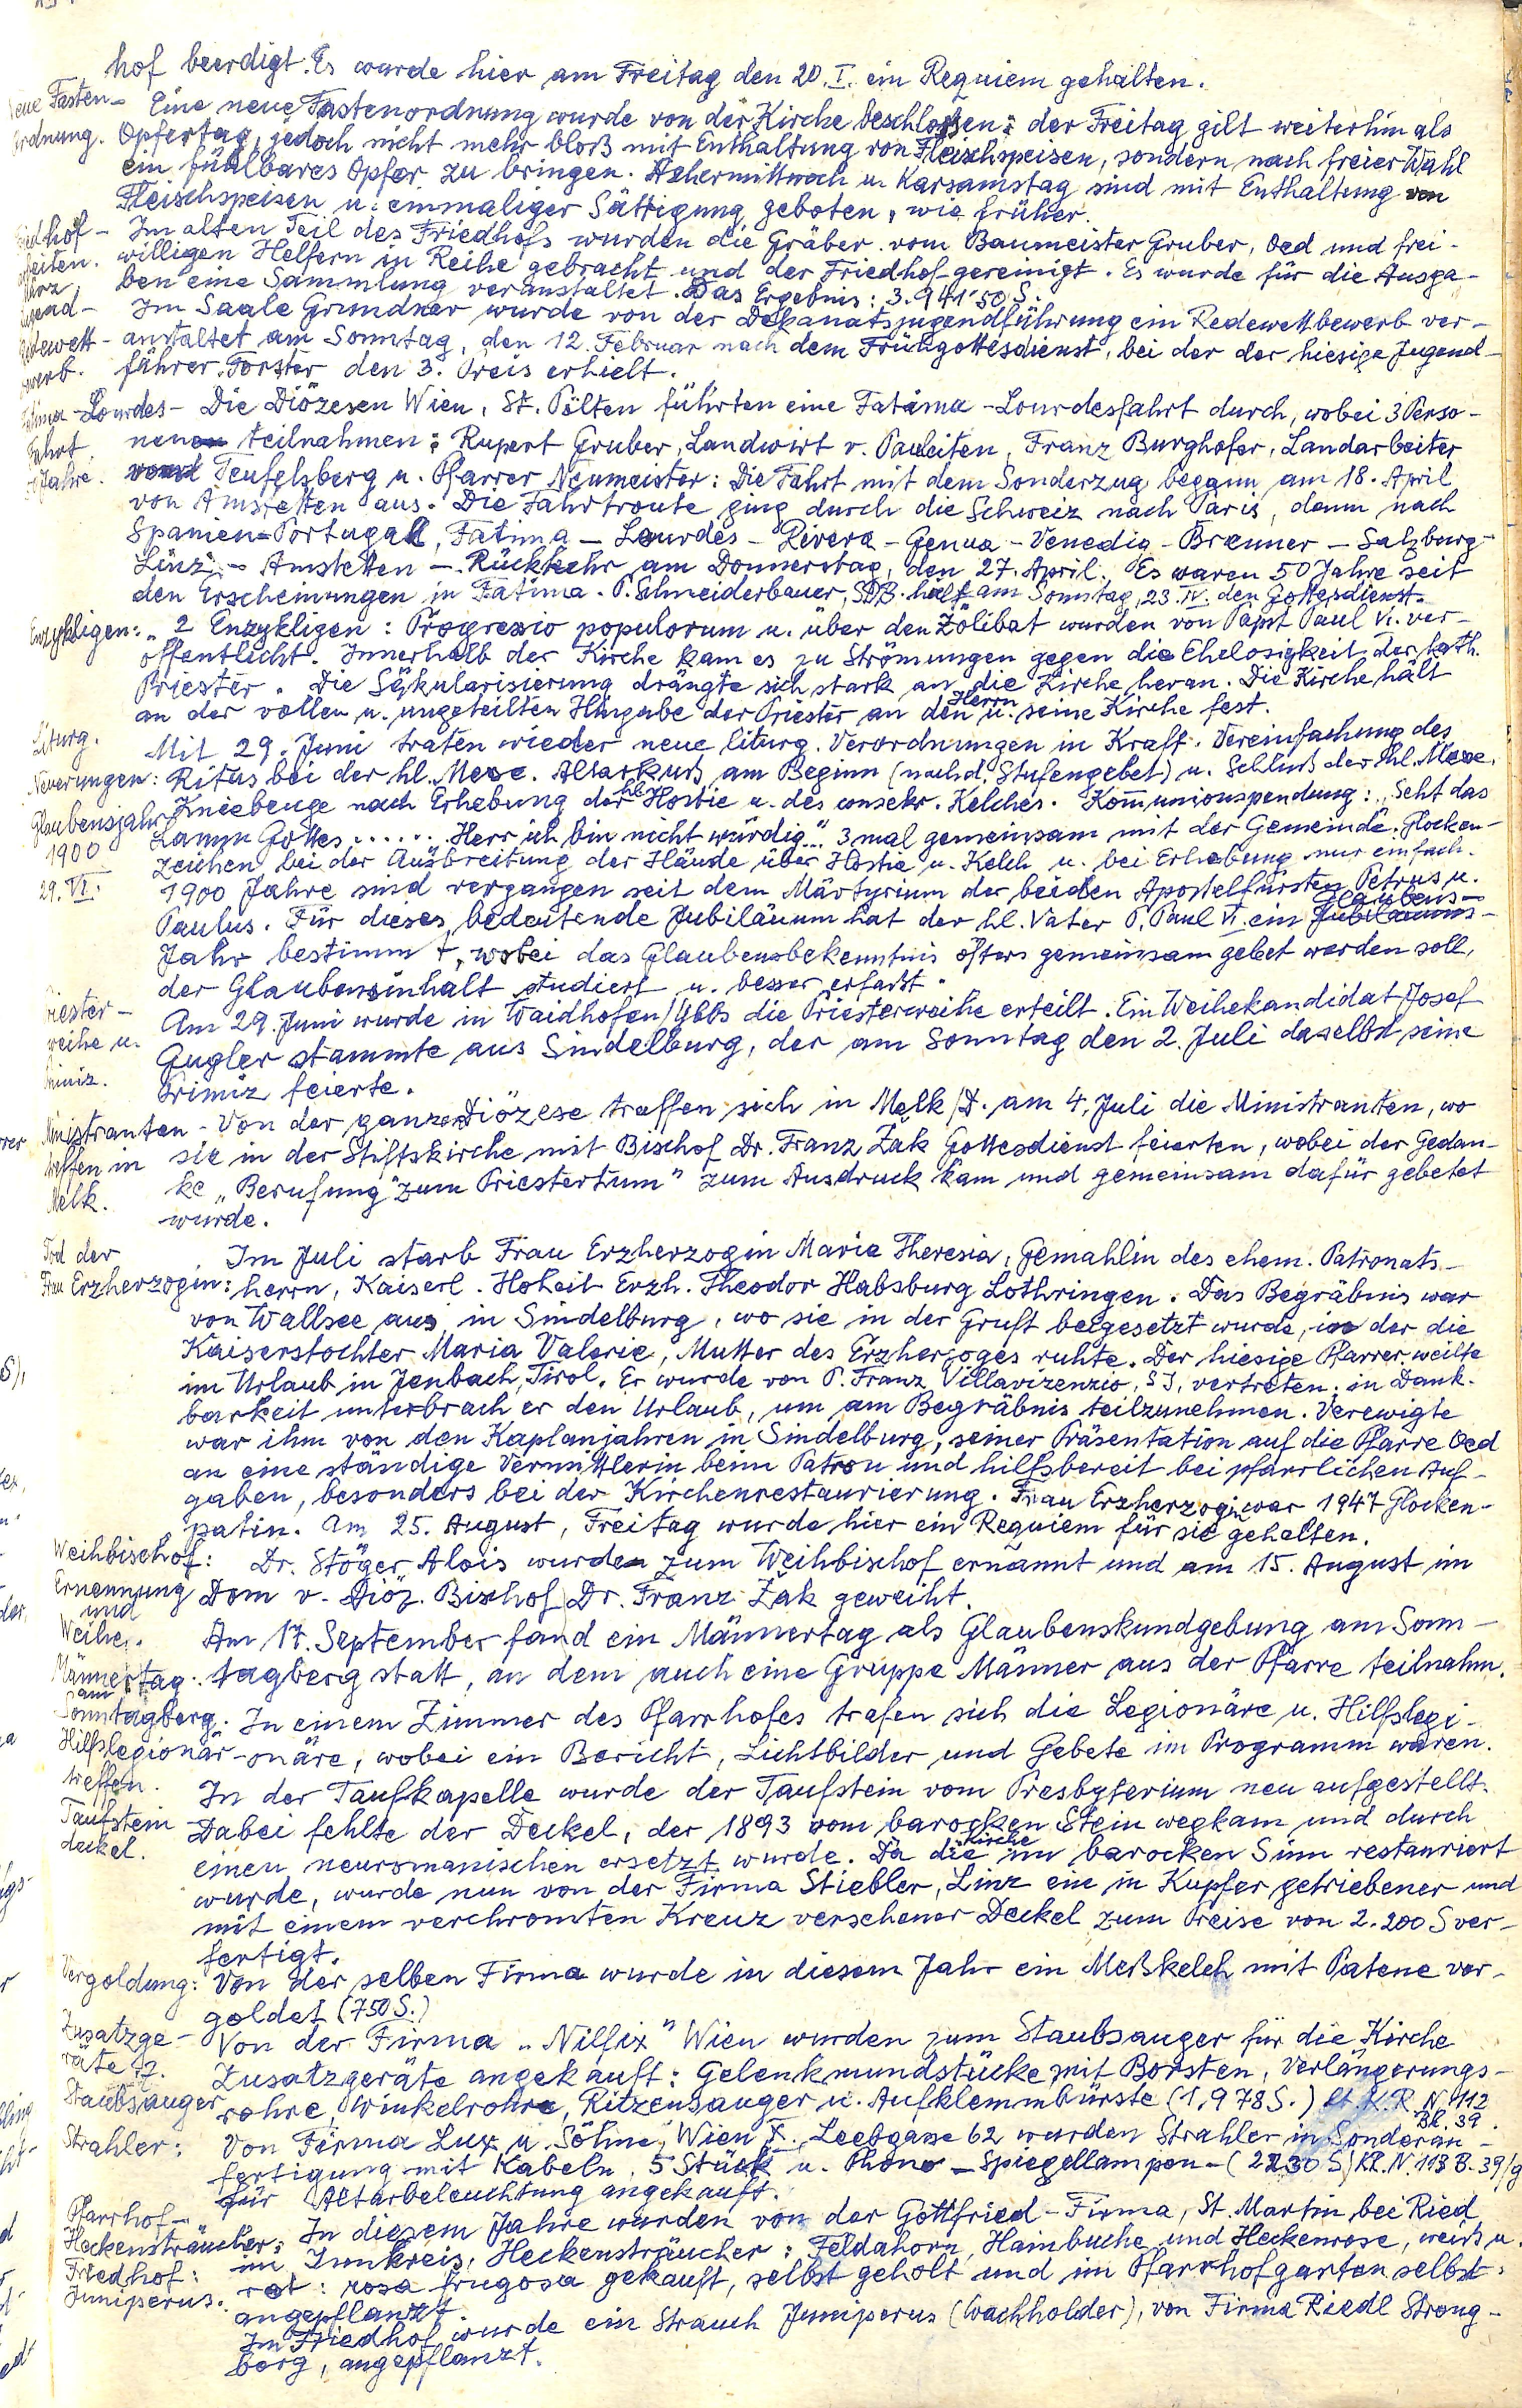 hof beerdigt. Es wurde hier am Freitag den 20. I. ein Requiem gehalten.
Neue Fasten- Eine neue Fastenordnung wurde von der Kirche beschlossen: der Freitag gilt weiterhin als
ordnung. Opfertag, jedoch nicht mehr bloß mit Enthaltung von Fleischspeisen, sondern nach freier Wahl
ein fühlbares Opfer zu bringen. Aschermittwoch u. Karsamstag sind mit Enthaltung von
Fleischspeisen u. einmaliger Sättigung geboten, wie früher.
Friedhof- Im alten Teil des Friedhofs wurden die Gräber vom Baumeister Gruber, Oed und frei-
arbeiten. willigen Helfern in Reihe gebracht und der Friedhof gereinigt. Es wurde für die Ausga-
März ben eine Sammlung veranstaltet. Das Ergebnis: 3.941'50 S.
Jugend- Im Saale Grundner wurde von der Dekanatsjugendführung ein Redewettbewerb ver-
Redewett- anstaltet am Sonntag, den 12. Februar nach dem Frühgottesdienst, bei der der hiesige Jugend-
bewerb. führer Forster den 3. Preis erhielt.
Fatima-Lourdes- Die Diözesen Wien, St. Pölten führten eine Fatima-Lourdesfahrt durch, wobei 3 Perso-
Fahrt. nen teilnahmen: Rupert Gruber, Landwirt v. Pauleiten, Franz Burghofer, Landarbeiter
Jahre. Teufelsberg u. Pfarrer Neumeister: Die Fahrt mit dem Sonderzug begann am 18. April
von Amstetten aus. Die Fahrtroute ging durch die Schweiz nach Paris, dann nach
Spanien-Portugal, Fatima - Lourdes - Rivera - Genua - Venedig - Brenner - Salzburg-
Linz - Amstetten - Rückkehr am Donnerstag, den 27. April. Es waren 50 Jahre seit
den Erscheinungen in Fatima. P. Schneiderbauer, SDB. half am Sonntag, 23. IV. den Gottesdienst.
Enzykligen: 2 Enzykligen: Progressio populorum u. über den Zölibat wurden von Papst Paul VI. ver-
öffentlicht. Innerhalb der Kirche kam es zu Strömungen gegen die Ehelosigkeit der kath.
Priester. Die Säkularisierung drängte sich stark an die Kirche heran. Die Kirche hält
an der vollen u. ungeteilten Hingabe der Priester an den Herrn u. seine Kirche fest.
Liturg. Mit 29. Juni traten wieder neue liturg. Verordnungen in Kraft. Vereinfachung des
Neuerungen: Ritus bei der hl. Messe. Altarkuß am Beginn (nach d. Stufengebet) u. Schluß der hl. Messe.
Glaubensjahr Kniebeuge nach Erhebung der hl. Hostie u. des consekr. Kelches. Kommunionspendung: „Seht das
1900 Lamm Gottes...... Herr ich bin nicht würdig..." 3 mal gemeinsam mit der Gemeinde. Glocken-
zeichen bei der Ausbreitung der Hände über Hostie u. Kelch u. bei Erhebung nur einfach.
29. VI. 1900 Jahre sind vergangen seit dem Märtyrium der beiden Apostelfürsten Petrus u.
Paulus. Für dieses bedeutende Jubiläum hat der hl. Vater P. Paul VI. ein Glaubens-
Jahr bestimmt, wobei das Glaubensbekenntnis öfters gemeinsam gebet werden soll,
der Glaubensinhalt studiert u. besser erfaßt.
Priester- Am 29. Juni wurde in Waidhofen/Ybbs die Priesterweihe erteilt. Ein Weihekandidat Josef
weihe u. Gugler stammte aus Sindelburg, der am Sonntag den 2. Juli daselbst seine
Primiz. Primiz feierte.
Ministranten- Von der ganzen Diözese traffen sich in Melk/D. am 4. Juli die Ministranten, wo
treffen in sie in der Stiftskirche mit Bischof Dr. Franz Žak Gottesdienst feierten, wobei der Gedan-
Melk. ke „Berufung" zum Priestertum" zum Ausdruck kam und gemeinsam dafür gebetet
wurde.
Tod der Im Juli starb Frau Erzherzogin Maria Theresia, Gemahlin des ehem. Patronats-
Frau Erzherzogin: herrn, Kaiserl. Hoheit Erzh. Theodor Habsburg Lothringen. Das Begräbnis war
von Wallsee aus in Sindelburg, wo sie in der Gruft beigesetzt wurde, in der die
Kaiserstochter Maria Valerie, Mutter des Erzherzoges ruhte. Der hiesige Pfarrer weilte
im Urlaub in Jenbach, Tirol. Er wurde von P. Franz Villavizenzio, SJ, vertreten. in Dank-
barkeit unterbrach er den Urlaub, um am Begräbnis teilzunehmen. Verewigte
war ihm von den Kaplanjahren in Sindelburg, seiner Präsentation auf die Pfarre Oed
an eine ständige Vermittlerin beim Patron und hilfsbereit bei pfarrlichen Auf-
gaben, besonders bei der Kirchenrestaurierung. Frau Erzherzogin war 1947 Glocken-
patin. Am 25. August, Freitag wurde hier ein Requiem für sie gehalten.
Weihbischof: Dr. Stöger Alois wurde zum Weihbischof ernannt und am 15. August im
Ernennung Dom v. Diöz. Bischof Dr. Franz Žak geweiht.
und
Weihe. Am 17. September fand ein Männertag als Glaubenskundgebung am Sonn-
Männertag tagberg statt, an dem auch eine Gruppe Männer aus der Pfarre teilnahm.
am
Sonntagberg. In einem Zimmer des Pfarrhofes trafen sich die Legionäre u. Hilfslegi-
Hilfslegionär- onäre, wobei ein Bericht, Lichtbilder und Gebete im Programm waren.
treffen. In der Taufkapelle wurde der Taufstein vom Presbyterium neu aufgestellt.
Taufstein Dabei fehlte der Deckel, der 1893 vom barocken Stein wegkam und durch
deckel. einen neuromanischen ersetzt wurde. Da die Kirche im barocken Sinn restauriert
wurde, wurde nun von der Firma Stiebler, Linz ein in Kupfer getriebener und
mit einem verchromten Kreuz versehener Deckel zum Preise von 2.200 S ver-
fertigt.
Vergoldung: Von der selben Firma wurde in diesem Jahr ein Meßkelch mit Patene ver-
goldet (750 S.)
Zusatzge- Von der Firma „Nilfix" Wien wurden zum Staubsauger für die Kirche
räte z. Zusatzgeräte angekauft: Gelenkmundstücke mit Borsten, Verlängerungs-
Staubsauger rohre, Winkelrohre, Ritzensauger u. Aufklemmbürste (1.978 S.) lt. K.R. N. 112
Bl. 39.
Strahler: Von Firma Lux u. Söhne, Wien X., Leebgasse 62 wurden Strahler in Sonderan-
fertigung mit Kabeln, 5 Stück u. Phono-Spiegellampen - (2230 S) KR. N. 113 B. 39/g
für Altarbeleuchtung angekauft.
Pfarrhof- In diesem Jahre wurden von der Gottfried-Firma, St. Martin bei Ried
Heckensträucher: im Innkreis, Heckensträucher: Feldahorn, Hainbuche und Heckenrose, weiß u.
Friedhof: rot: rosa frugosa gekauft, selbst geholt und im Pfarrhofgarten selbst
Juniperus. angepflanzt.
Im Friedhof wurde ein Strauch Juniperus (Wachholder), von Firma Riedl Streng-
berg, angepflanzt.